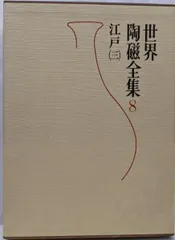 世界
陶磁全集8
江戸(三)